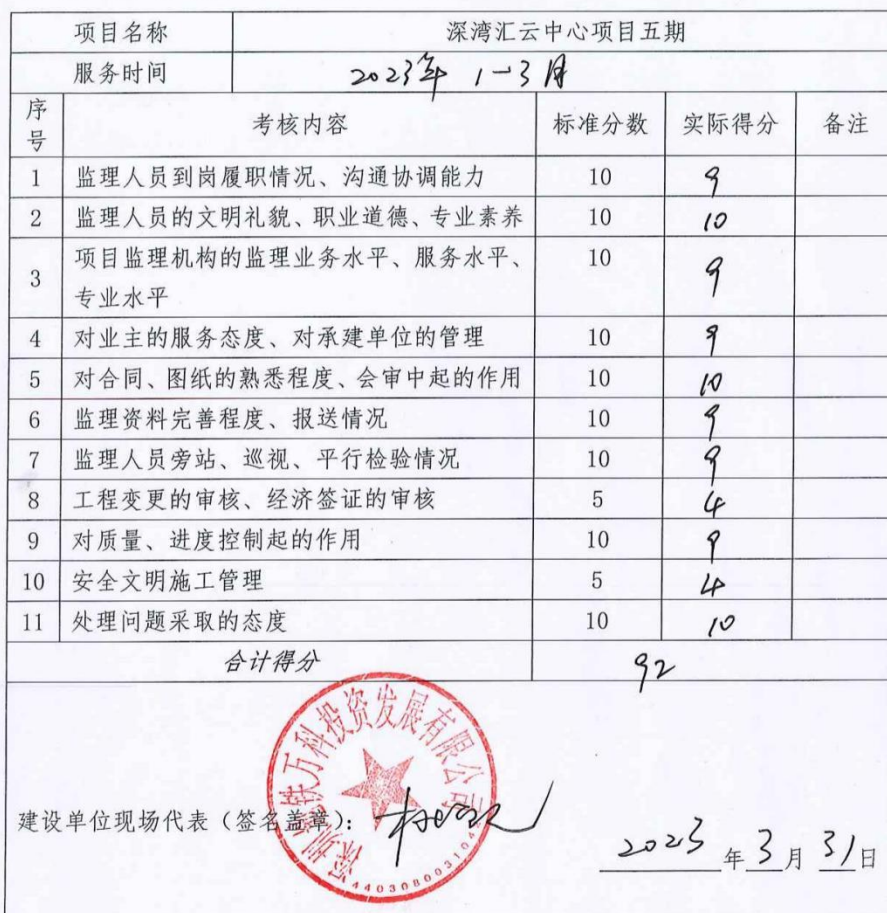 项目名称 深湾汇云中心项目五期
服务时间 2023年 1-3月
序号 考核内容 标准分数 实际得分 备注
1 监理人员到岗履职情况、沟通协调能力 10 9
2 监理人员的文明礼貌、职业道德、专业素养 10 10
3 项目监理机构的监理业务水平、服务水平、 10 9
专业水平
4 对业主的服务态度、对承建单位的管理 10 9
5 对合同、图纸的熟悉程度、会审中起的作用 10 10
6 监理资料完善程度、报送情况 10 9
7 监理人员旁站、巡视、平行检验情况 10 9
8 工程变更的审核、经济签证的审核 5 4
9 对质量、进度控制起的作用 10 9
10 安全文明施工管理 5 4
11 处理问题采取的态度 10 10
合计得分 92
深圳地铁万科投资发展有限公司
建设单位现场代表（签名盖章）：
2023 年 3 月 31 日